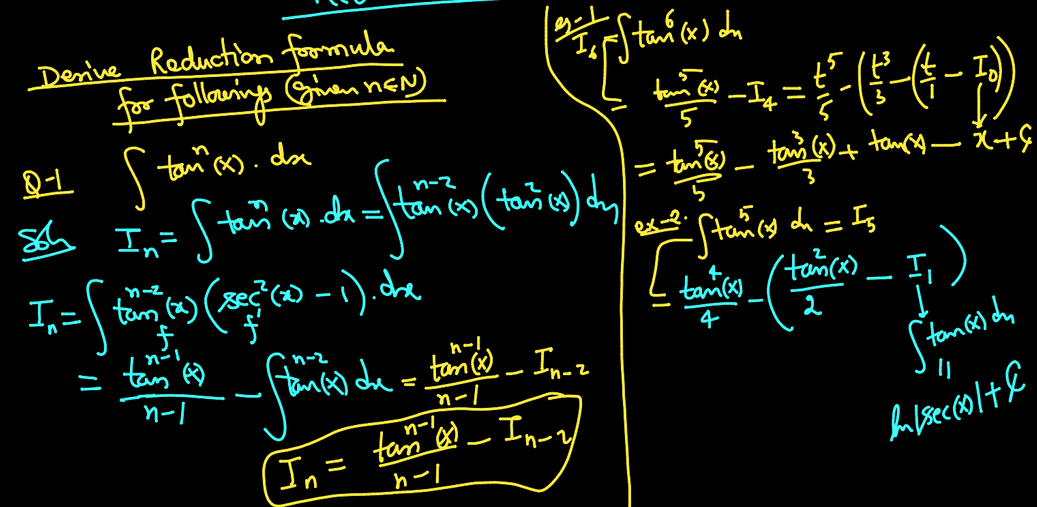 Derive Reduction formula
for followings (given n∈N)
Q-1 ∫ tanⁿ(x). dx
Soln Iₙ = ∫ tanⁿ(x). dx = ∫ tanⁿ⁻²(x) (tan²(x)) dx
Iₙ = ∫ tanⁿ⁻²(x) (sec²(x) - 1). dx
f f'
= tanⁿ⁻¹(x)/n-1 - ∫ tanⁿ⁻²(x) dx = tanⁿ⁻¹(x)/n-1 - Iₙ₋₂
Iₙ = tanⁿ⁻¹(x)/n-1 - Iₙ₋₂
ex-1 I₆ = ∫ tan⁶(x) dx
= tan⁵(x)/5 - I₄ = t⁵/5 - (t³/3 - (t/1 - I₀))
= tan⁵(x)/5 - tan³(x)/3 + tan(x) - x + C
ex-2. ∫ tan⁵(x) dx = I₅
= tan⁴(x)/4 - (tan²(x)/2 - I₁)
∫ tan(x) dx
||
ln|sec(x)| + C